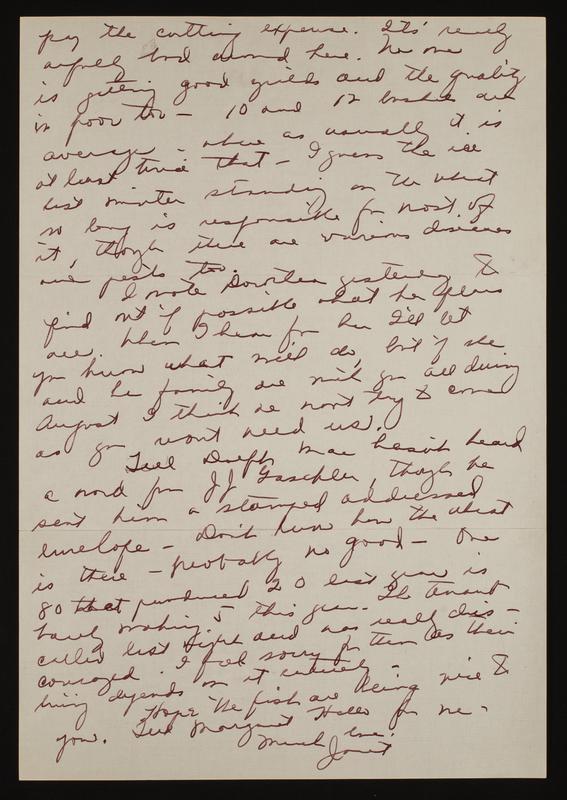 pay the cutting expense. Its' really
awfully bad around here. No one
is getting good yields and the quality
is poor too - 10 and 12 bushels are
average - where as usually it is
at least twice that - I guess the ice
last winter standing on the wheat
so long is responsible for most of
it, though there are various diseases
and pests too.
I wrote Dorothea yesterday to
find out if possible what her plans
are. When I hear from her I'll let
you know what we'll do, but if she
and her family are with you all during
August I think we won't try to come
as you won't need us.
Tell Dolph Mac hasn't heard
a word from JJ Gaschler, though he
sent him a stamped addressed
envelope - Don't know how the wheat
is there - probably no good - One
80 that produced 20 last year is
barely making 5 this year. The tenant
called last night and was really dis-
couraged. I feel sorry for them as their
living depends on it entirely -
Hope the fish are being nice to
you. Tell Margaret Hello for me -
Much love
Janet